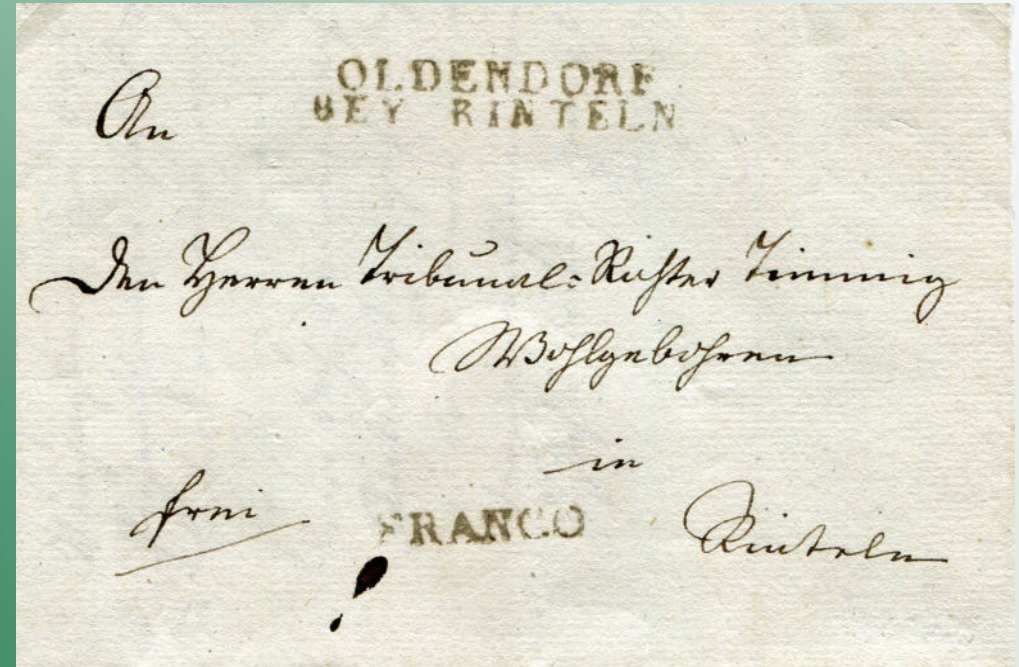 OLDENDORF
BEY RINTELN
An
den Herren Tribunal-Richter Timmig
Wohlgebohren
in
frei
FRANCO
Rinteln